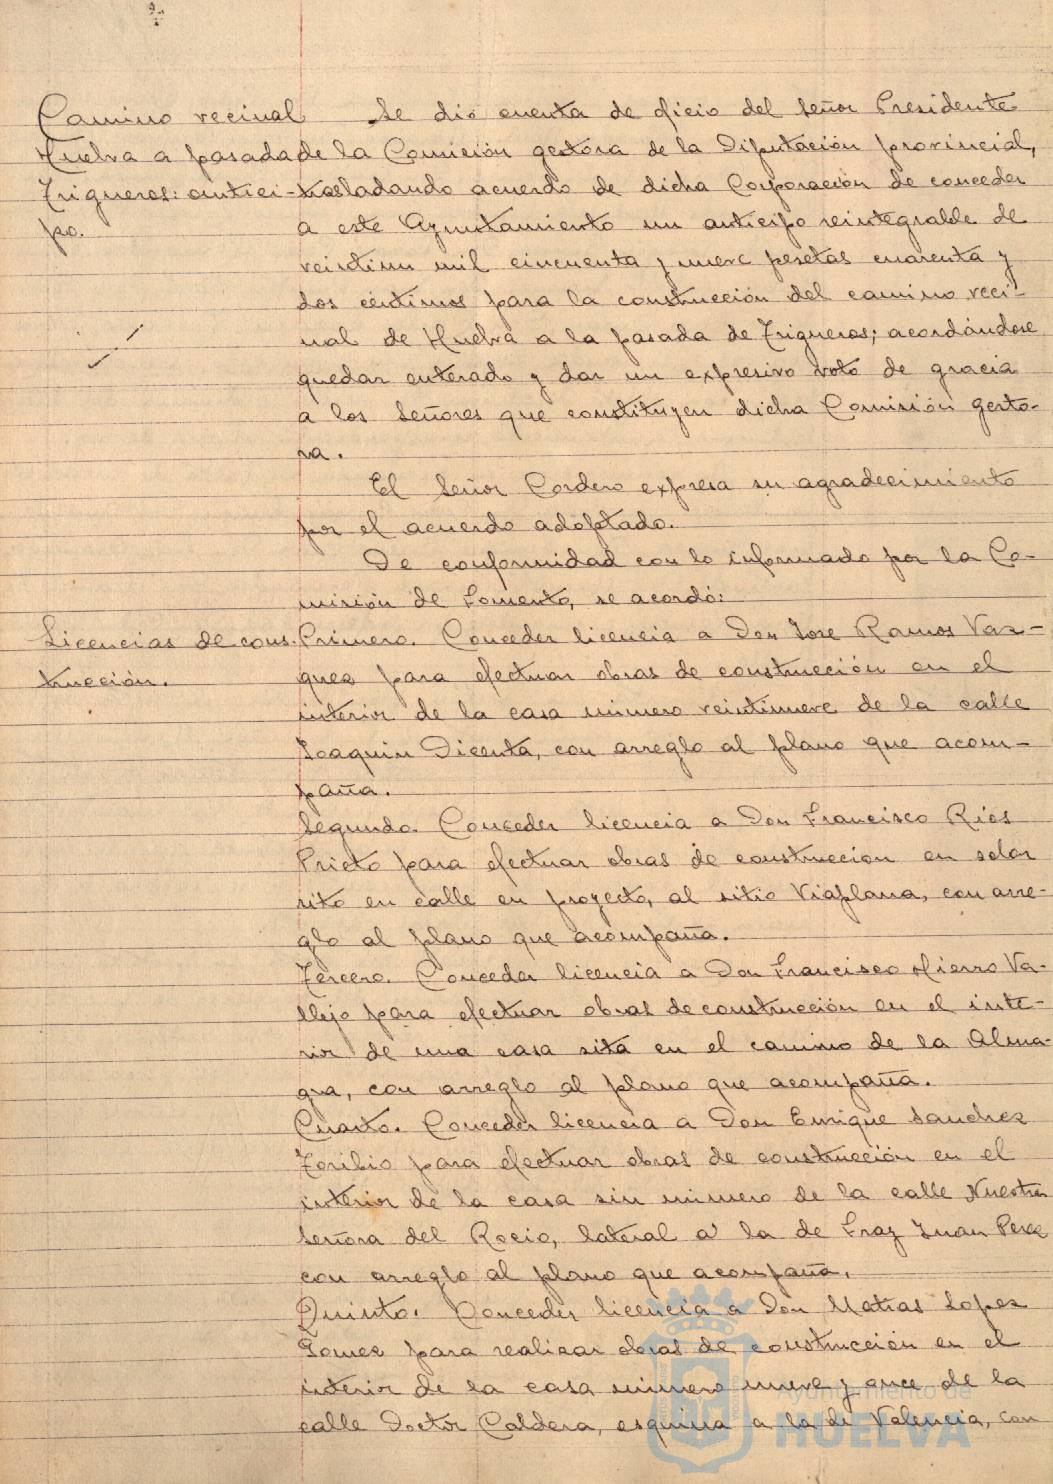 Camino vecinal
Huelva a pasada de
Trigueros: antici-
po.
Se dió cuenta de oficio del Señor Presidente
de la Comisión gestora de la Diputación provincial,
trasladando acuerdo de dicha Corporación de conceder
a este Ayuntamiento un anticipo reintegrable de
veintiun mil cincuenta y nueve pesetas cuarenta y
dos céntimos para la construcción del camino veci-
nal de Huelva a la pasada de Trigueros; acordándose
quedar enterado y dar un expresivo voto de gracia
a los Señores que constituyen dicha Comisión gesto-
ra.
El Señor Cordero expresa su agradecimiento
por el acuerdo adoptado.
De conformidad con lo informado por la Co-
misión de Fomento, se acordó:
Licencias de cons-
trucción.
Primero. Conceder licencia a Don Jose Ramos Vaz-
quez para efectuar obras de construcción en el
interior de la casa número veintinueve de la calle
Joaquin Dicenta, con arreglo al plano que acom-
paña.
Segundo. Conceder licencia a Don Francisco Rios
Prieto para efectuar obras de construccion en solar
sito en calle en proyecto, al sitio Viaplana, con arre-
glo al plano que acompaña.
Tercero. Conceder licencia a Don Francisco Hierro Va-
llejo para efectuar obras de construcción en el inte-
rior de una casa sita en el camino de la Alma-
gra, con arreglo al plano que acompaña.
Cuarto. Conceder licencia a Don Enrique Sanchez
Toribio para efectuar obras de construcción en el
interior de la casa sin número de la calle Nuestra
Señora del Rocio, lateral a la de Fray Juan Perez
con arreglo al plano que acompaña.
Quinto. Conceder licencia a Don Matias Lopez
Gomez para realizar obras de construcción en el
interior de la casa número nueve y once de la
calle Doctor Caldera, esquina a la de Valencia, con
Ayuntamiento de
HUELVA